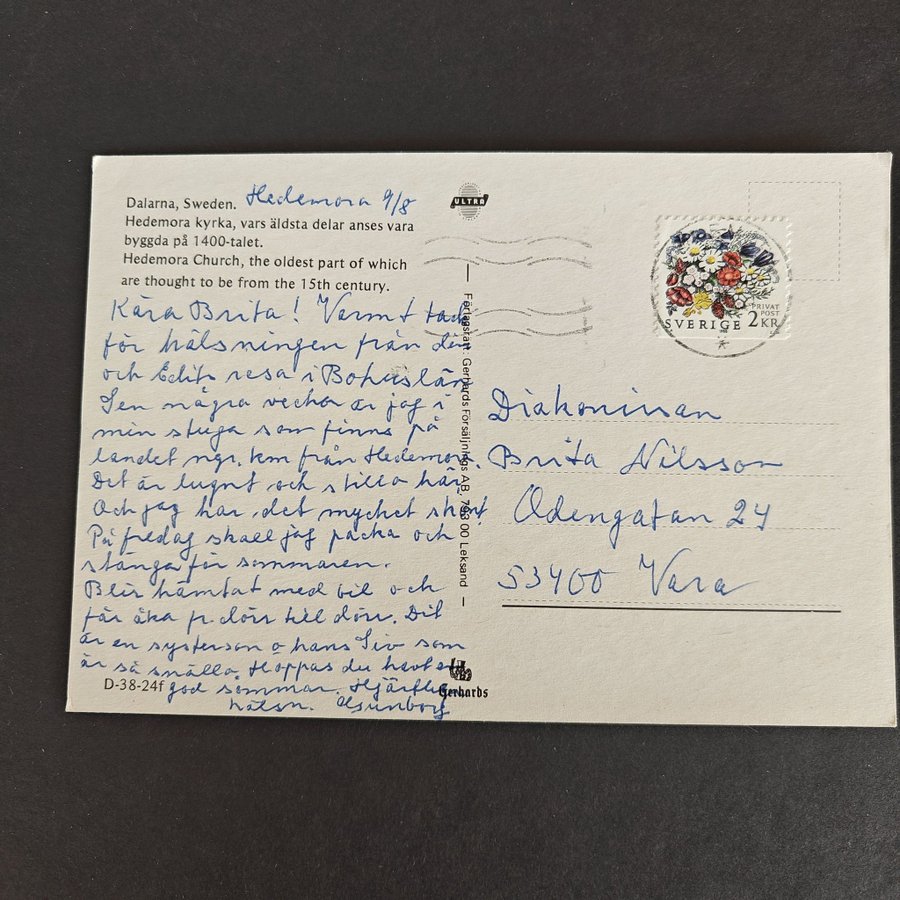 Dalarna, Sweden. Hedemora 9/8
Hedemora kyrka, vars äldsta delar anses vara
byggda på 1400-talet.
Hedemora Church, the oldest part of which
are thought to be from the 15th century.
Kära Brita! Varmt tack
för hälsningen från din
och Edits resa i Bohuslän
Sen några veckor är jag i
min stuga som finns på
landet ngr. km från Hedemora.
Det är lugnt och stilla här
Och jag har det mycket skönt.
På fredag skall jag packa och
stänga för sommaren.
Blir hämtat med bil och
får åka fr. dörr till dörr. Det
är en systerson o hans Siv som
är så snälla. Hoppas du haft en
god sommar. Hjärtlig
hälsn.
D-38-24f
ULTRA
Förlagsrätt: Gerhards Försäljnings AB, 793 00 Leksand
Gerhards
PRIVAT
POST
SVERIGE 2KR
Diakonissan
Brita Nilsson
Odengatan 24
53400 Vara